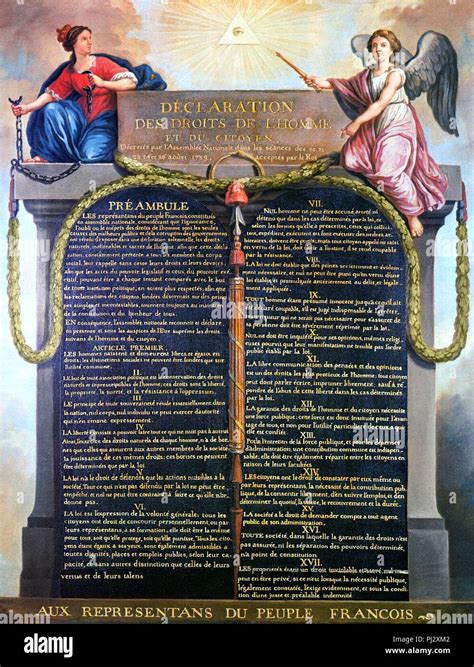 DÉCLARATION
DES DROITS DE L'HOMME
ET DU CITOYEN
Décrétés par l'Assemblée Nationale dans les séances des 20, 21
23, 24 et 26 août 1789, Acceptés par le Roi
PRÉAMBULE
LES représentans du peuple Francois, constitués
en assemblée nationale, considérant que l'ignorance,
l'oubli ou le mépris des droits de l'homme sont les seules
causes des malheurs publics et de la corruption des gouvernemens
ont résolu d'exposer dans une déclaration solemnelle, les droits
naturels, inaliénables et sacrés de l'homme, afin que cette déclaration,
constamment présente à tous les membres du corps
social, leur rappelle sans cesse leurs droits et leurs devoirs
afin que les actes du pouvoir législatif et ceux du pouvoir exécutif,
pouvant être à chaque instant comparés avec le but
de toute institution politique, en soient plus respectés; afin que
les réclamations des citoyens, fondées désormais sur des principes
simples et incontestables, tournent toujours au maintien
de la constitution et du bonheur de tous.
EN conséquence, l'assemblée nationale reconnoit et déclare,
en présence et sous les auspices de l'Être suprême les droits
suivans de l'homme et du citoyen.
ARTICLE PREMIER.
LES hommes naissent et demeurent libres et égaux en
droits, les distinctions sociales ne peuvent être fondées que sur
l'utilité commune.
II.
LE but de toute association politique est la conservation des droits
naturels et imprescriptibles de l'homme; ces droits sont la liberté,
la propriété, la sureté, et la résistance à l'oppression.
III.
LE principe de toute souveraineté réside essentiellement dans
la nation, nul corps, nul individu ne peut exercer d'autorité
qui n'en émane expressément.
LA liberté consiste à pouvoir faire tout ce qui ne nuit pas à autrui
Ainsi, l'exercice des droits naturels de chaque homme, n'a de bornes
que celles qui assurent aux autres membres de la société
la jouissance de ces mêmes droits; ces bornes ne peuvent
être déterminées que par la loi
V.
LA loi n'a le droit de défendre que les actions nuisibles à la
société. Tout ce qui n'est pas défendu par la loi ne peut être
empêché, et nul ne peut être contraint à faire ce qu'elle n'ordonne
pas.
VI.
LA loi est l'expression de la volonté générale; tous les
citoyens ont droit de concourir personnellement, ou par
leurs représentans, à sa formation; elle doit être la même
pour tous, soit qu'elle protege, soit qu'elle punisse. Tous les
citoyens étant égaux à ses yeux, sont également admissibles à
toutes dignités, places et emplois publics, selon leur capacité,
et sans autres distinction que celles de leurs
vertus et de leurs talens
VII.
NUL homme ne peut être accusé, arrêté ni
détenu que dans les cas déterminés par la loi, et selon
les formes qu'elle a prescrites, ceux qui sollicitent,
expédient, exécutent ou font exécuter des ordres arbitraires,
doivent être punis; mais tout citoyen appelé ou saisi
en vertu de la loi, doit obéir à l'instant, il se rend coupable
par la résistance.
VIII.
LA loi ne doit établir que des peines strictement et évidemment
nécessaires, et nul ne peut être puni qu'en vertu d'une loi
établie et promulguée antérieurement au délit, et légalement
appliquée.
IX.
TOUT homme étant présumé innocent jusqu'à ce qu'il ait
été déclaré coupable, s'il est jugé indispensable de l'arrêter,
toute rigueur qui ne seroit pas nécessaire pour s'assurer
de sa personne doit être sévèrement réprimée par la loi.
X.
NUL ne doit être inquiété pour ses opinions, mêmes religieuses
pourvu que leur manifestation ne trouble pas l'ordre
public établi par la loi.
XI.
LA libre communication des pensées et des opinions
est un des droits les plus précieux de l'homme; tout citoyen
peut donc parler, écrire, imprimer librement, sauf à
répondre de l'abus de cette liberté dans les cas déterminés
par la loi.
XII.
LA garantie des droits de l'homme et du citoyen nécessite
une force publique; cette force est donc instituée pour l'avantage
de tous, et non pour l'utilité particulière de ceux à qui
elle est confiée.
XIII.
POUR l'entretien de la force publique, et pour les dépenses d'administration,
une contribution commune est indispensable; elle
doit être également répartie entre les citoyens en
raison de leurs facultés
XIV.
LES citoyens ont le droit de constater par eux même ou par
leurs représentans, la nécessité de la contribution publique,
de la consentir librement, d'en suivre l'emploi, et d'en
déterminer la quotité, l'assiette, le recouvrement et la durée.
XV.
LA société a le droit de demander compte à tout agent
public de son administration.
XVI.
TOUTE société, dans laquelle la garantie des droits n'est
pas assurée, ni la séparation des pouvoirs déterminée,
n'a point de constitution.
XVII.
LES propriétés étant un droit inviolable et sacré, nul ne
peut en être privé, si ce n'est lorsque la nécessité publique,
légalement constatée, l'exige évidemment, et sous la condition
d'une juste et préalable indemnité.
AUX REPRESENTANS DU PEUPLE FRANCOIS
alamy
Image ID: PJ2XM2
www.alamy.com